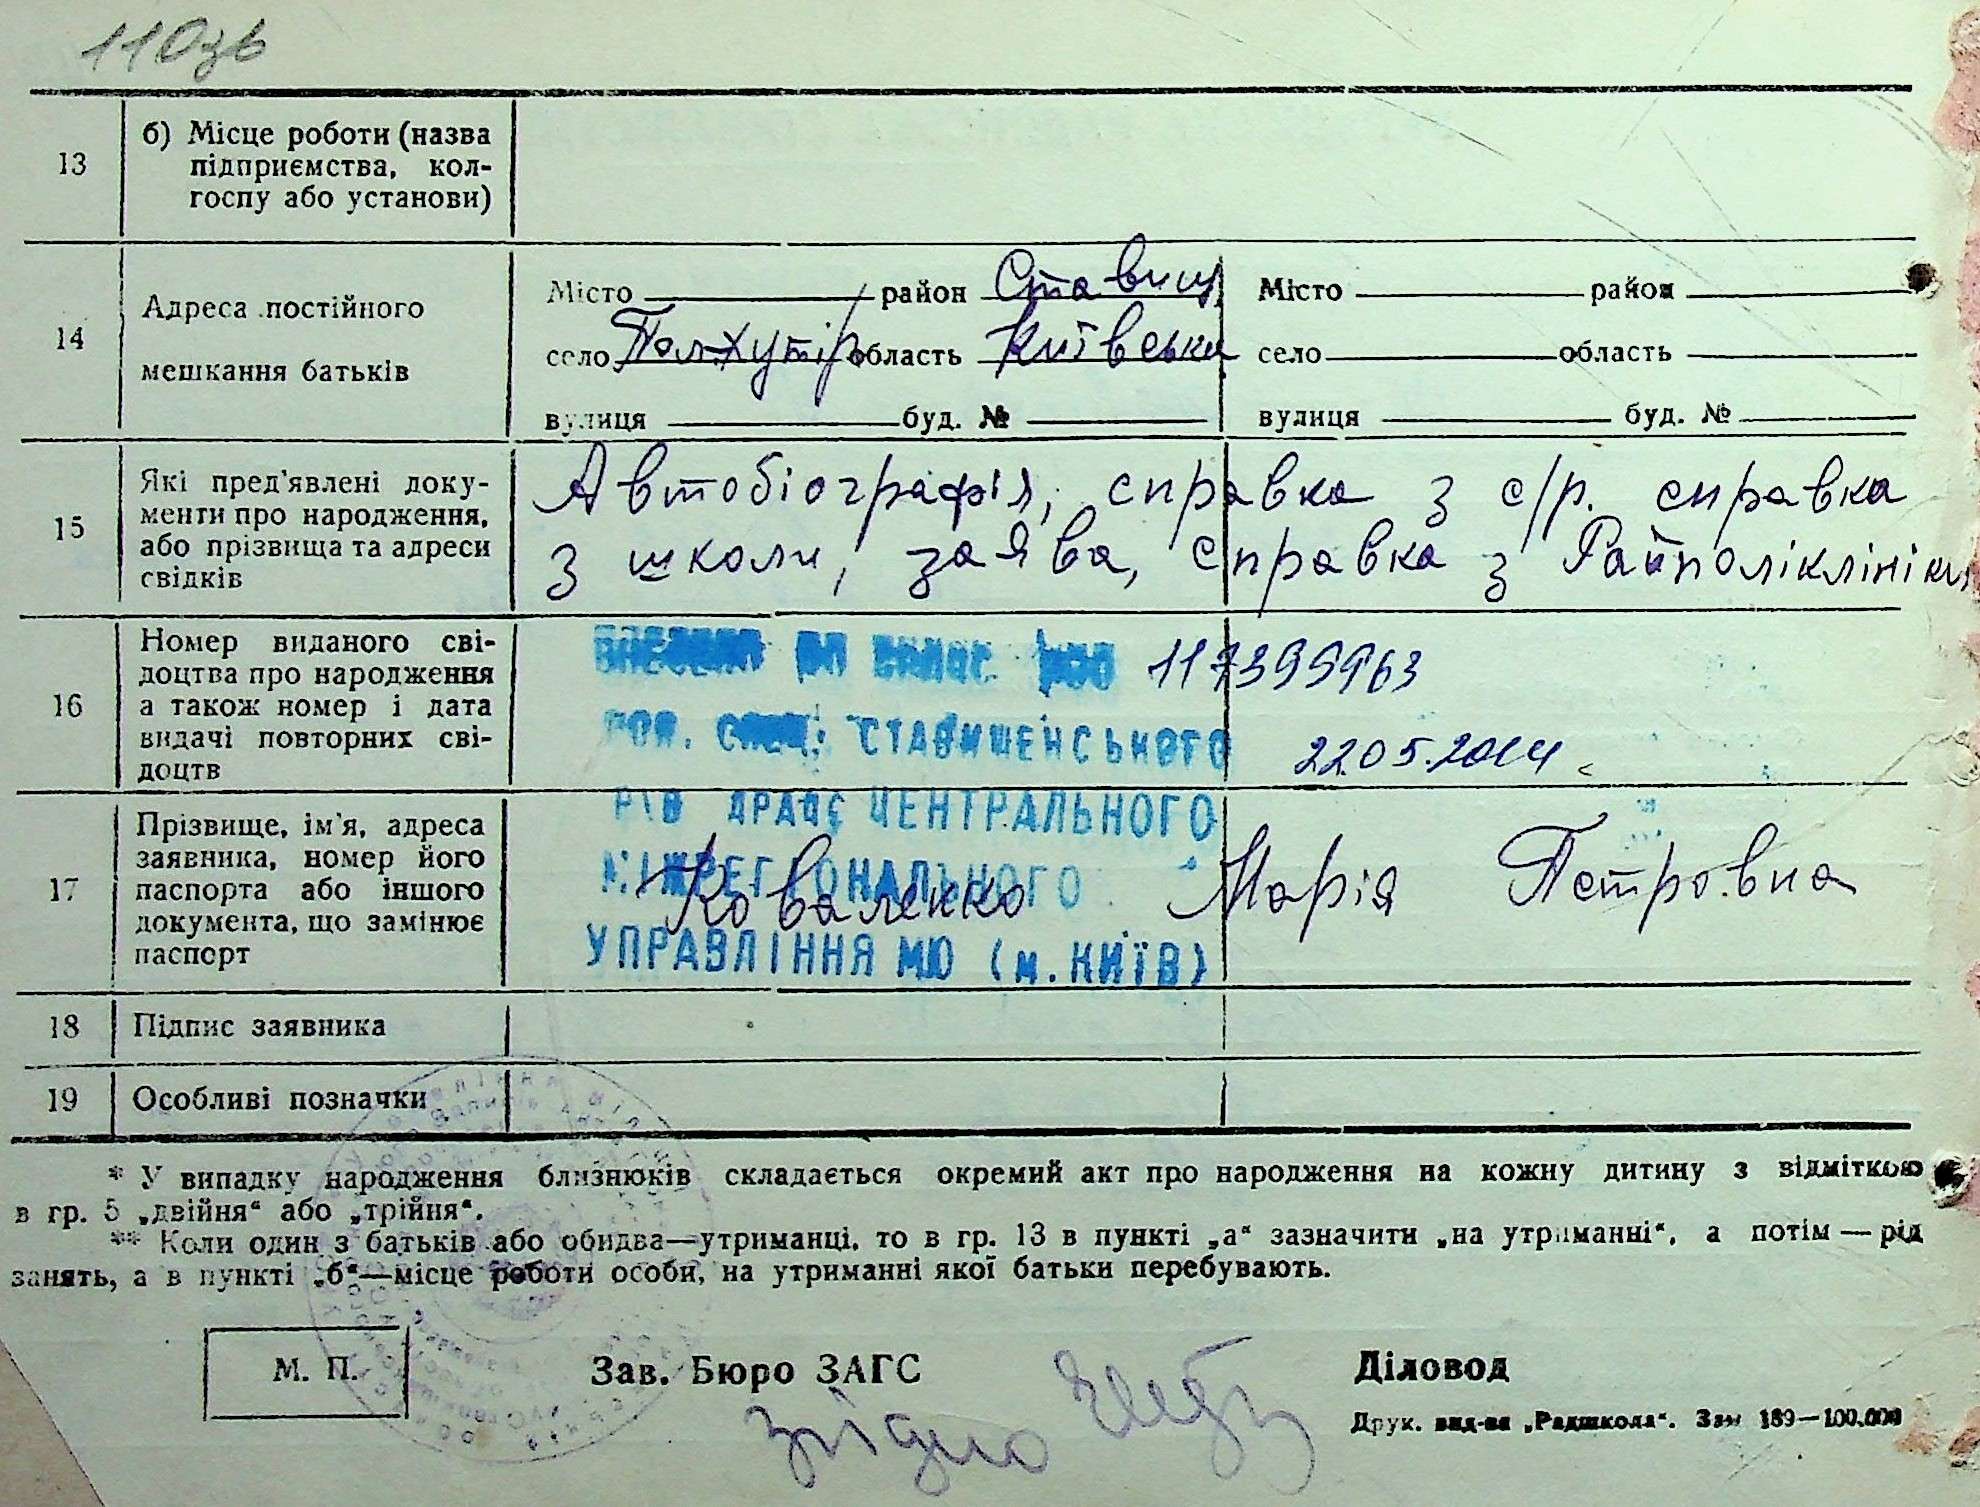 110зв
13
б) Місце роботи (назва
підприємства, кол-
госпу або установи)
14
Адреса постійного
мешкання батьків
Місто район Ставищ
село Пол.хутір область Київська
вулиця буд. №
Місто район
село область
вулиця буд. №
15
Які пред'явлені доку-
менти про народження,
або прізвища та адреси
свідків
Автобіографія, справка з с/р. справка
з школи, заява, справка з Райполіклініки,
16
Номер виданого сві-
доцтва про народження
а також номер і дата
видачі повторних сві-
доцтв
117399963
СТАВИЩЕНСЬКОГО 22.05.2014
17
Прізвище, ім'я, адреса
заявника, номер його
паспорта або іншого
документа, що замінює
паспорт
ДРАЦС ЦЕНТРАЛЬНОГО
МІЖРЕГІОНАЛЬНОГО
УПРАВЛІННЯ МЮ (м. КИЇВ)
Коваленко Марія Петровна
18
Підпис заявника
19
Особливі позначки
* У випадку народження близнюків складається окремий акт про народження на кожну дитину з відміткою
в гр. 5 „двійня“ або „трійня“.
** Коли один з батьків або обидва—утриманці, то в гр. 13 в пункті „а“ зазначити „на утриманні“, а потім — рід
занять, а в пункті „б“—місце роботи особи, на утриманні якої батьки перебувають.
М. П.
Зав. Бюро ЗАГС
Діловод
згідно
Друк. вид-ва „Радшкола“. Зам 189—100.000